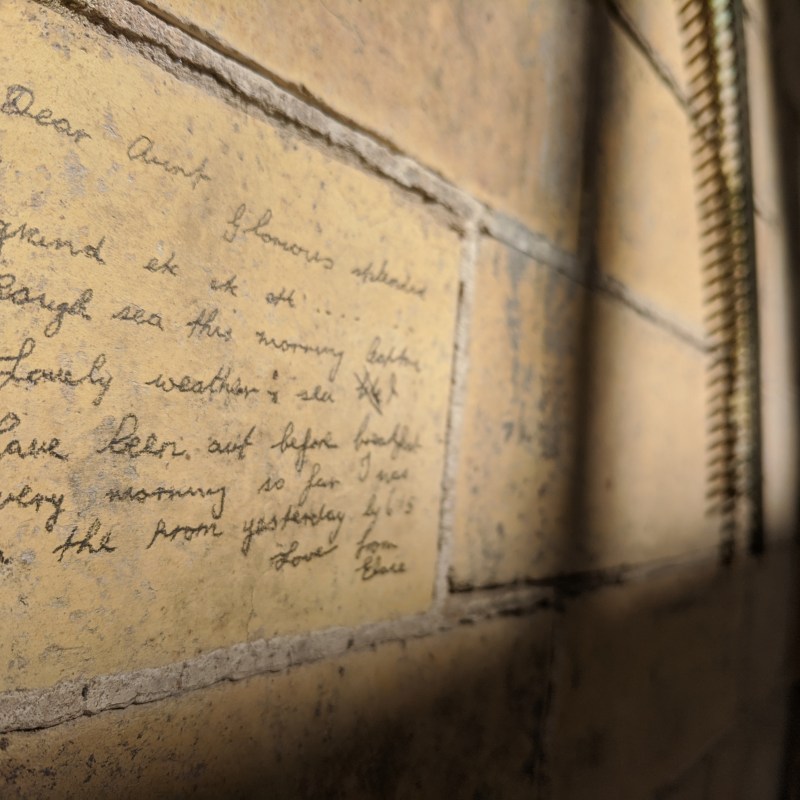 Dear Aunt
Glorious splendid
gkind etc etc etc ....
Rough sea this morning
Lovely weather & sea
have been out before breakfast
every morning so far I was
the Prom yesterday by 6.15
Love from
Elsie